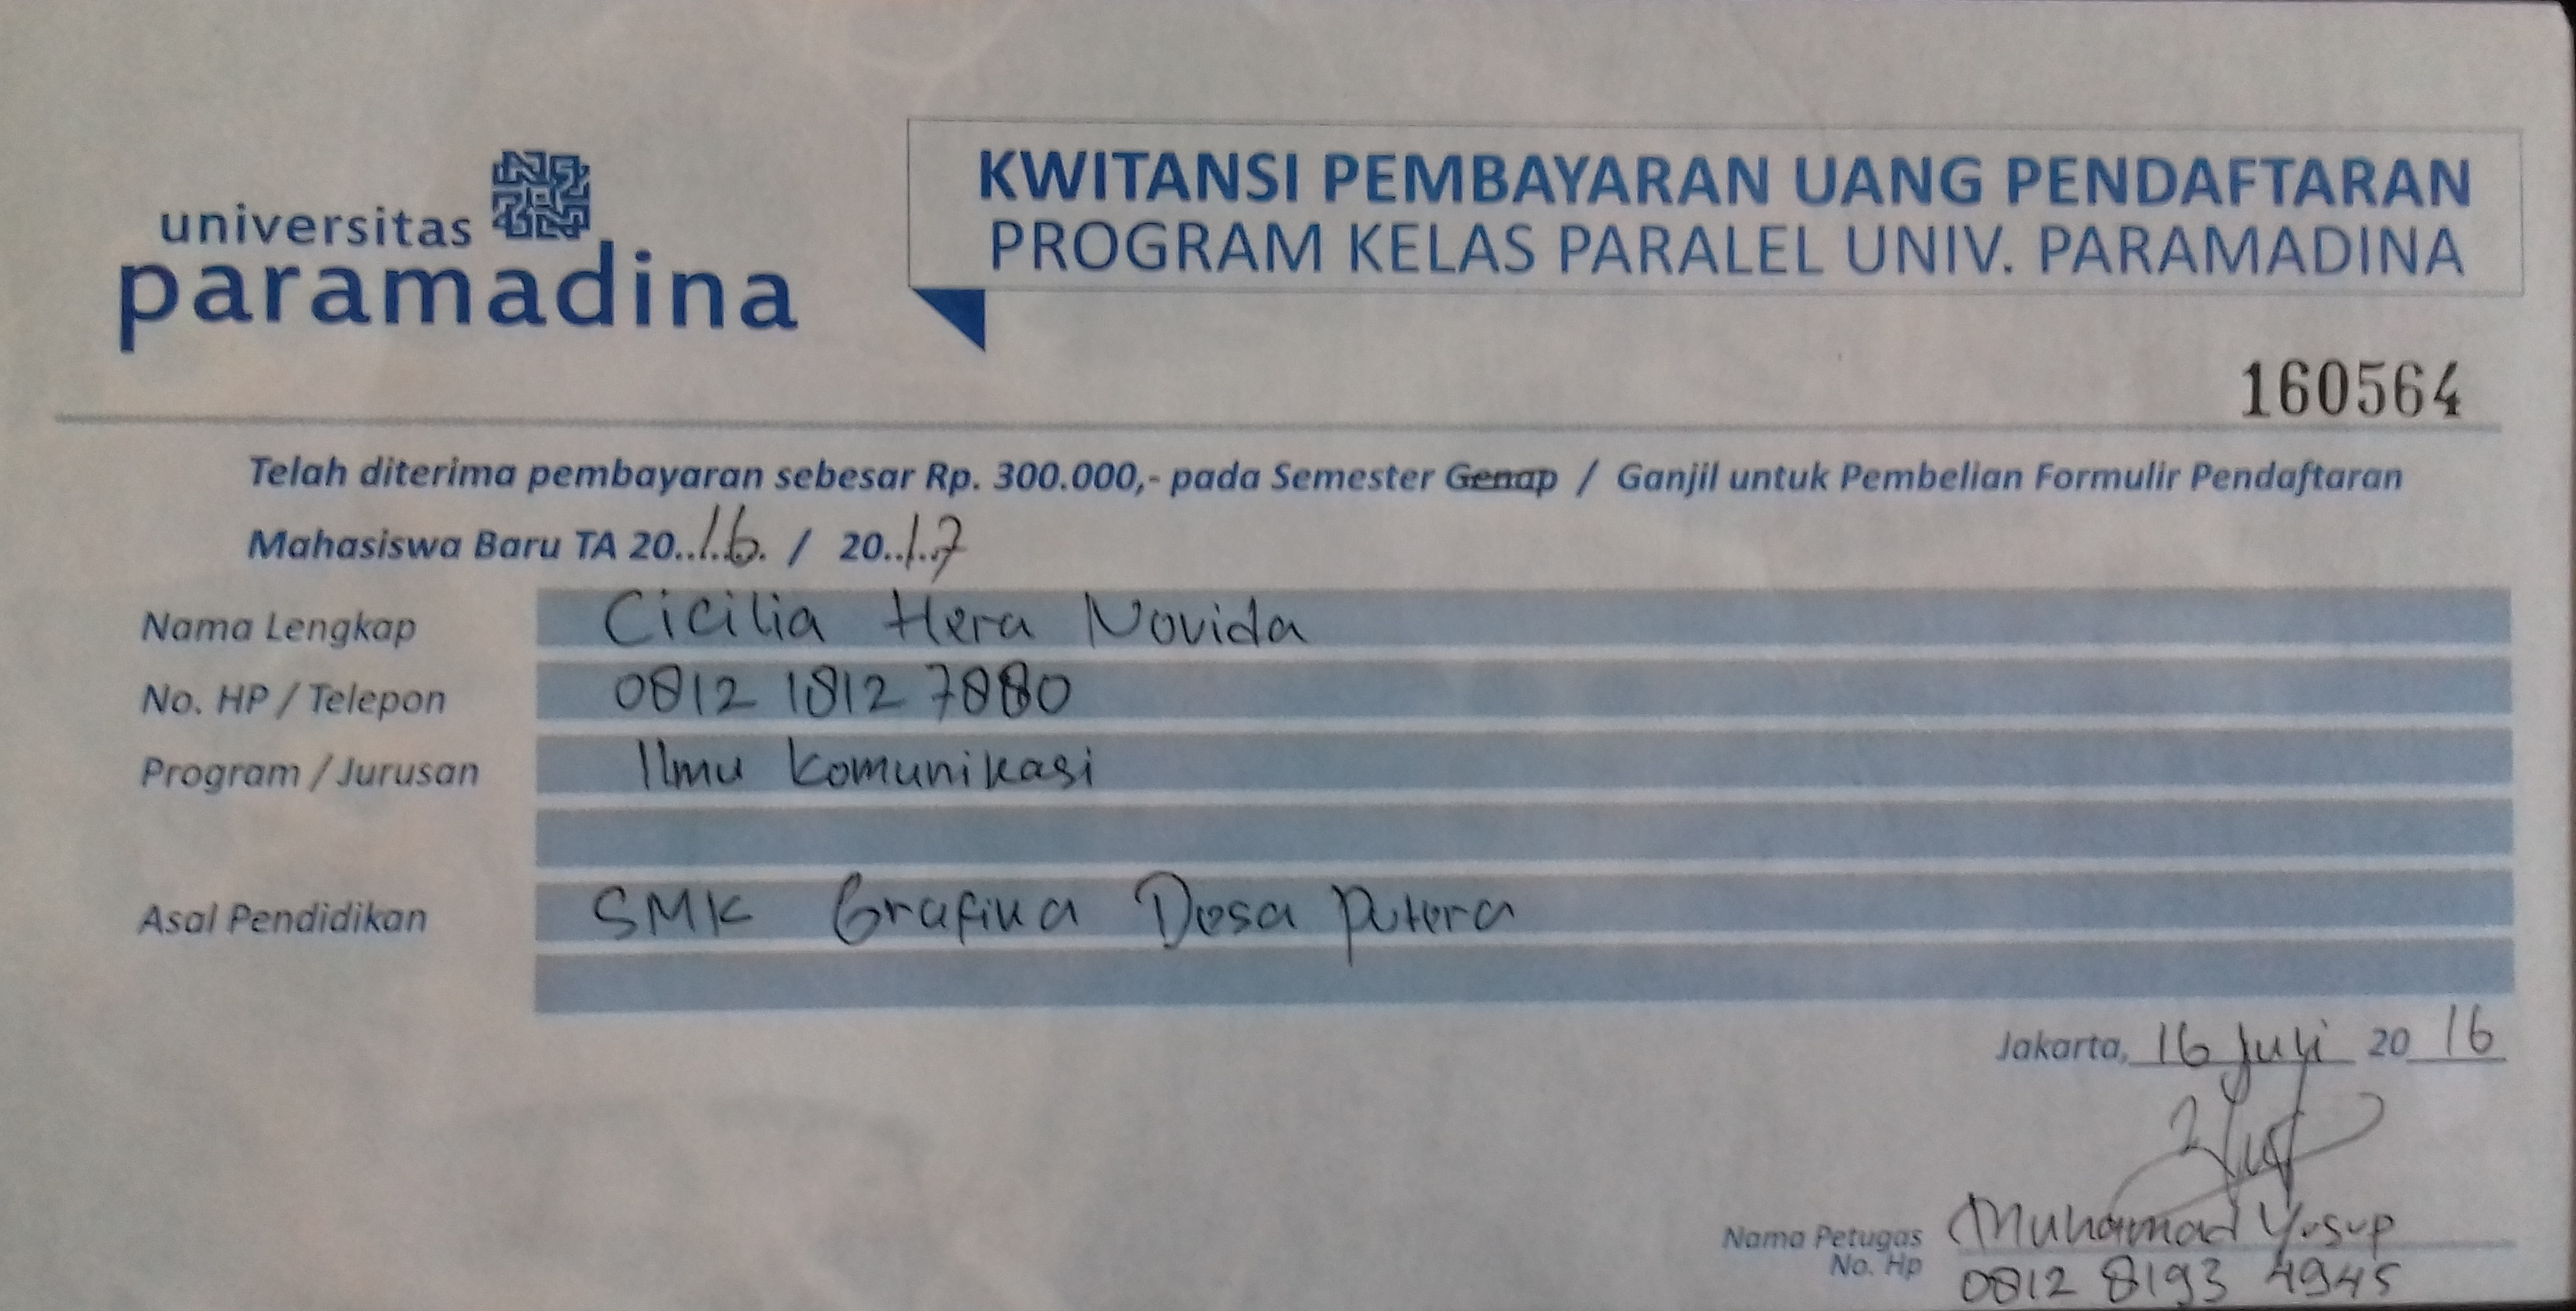 universitas
paramadina
KWITANSI PEMBAYARAN UANG PENDAFTARAN
PROGRAM KELAS PARALEL UNIV. PARAMADINA
160564
Telah diterima pembayaran sebesar Rp. 300.000,- pada Semester Genap / Ganjil untuk Pembelian Formulir Pendaftaran
Mahasiswa Baru TA 20..16. / 20..17
Nama Lengkap Cicilia Hera Novida
No. HP / Telepon 0812 1812 7880
Program / Jurusan Ilmu Komunikasi
Asal Pendidikan SMK Grafika Desa Putera
Jakarta, 16 Juli 20 16
Nama Petugas Muhamad Yusup
No. Hp 0812 8193 4945